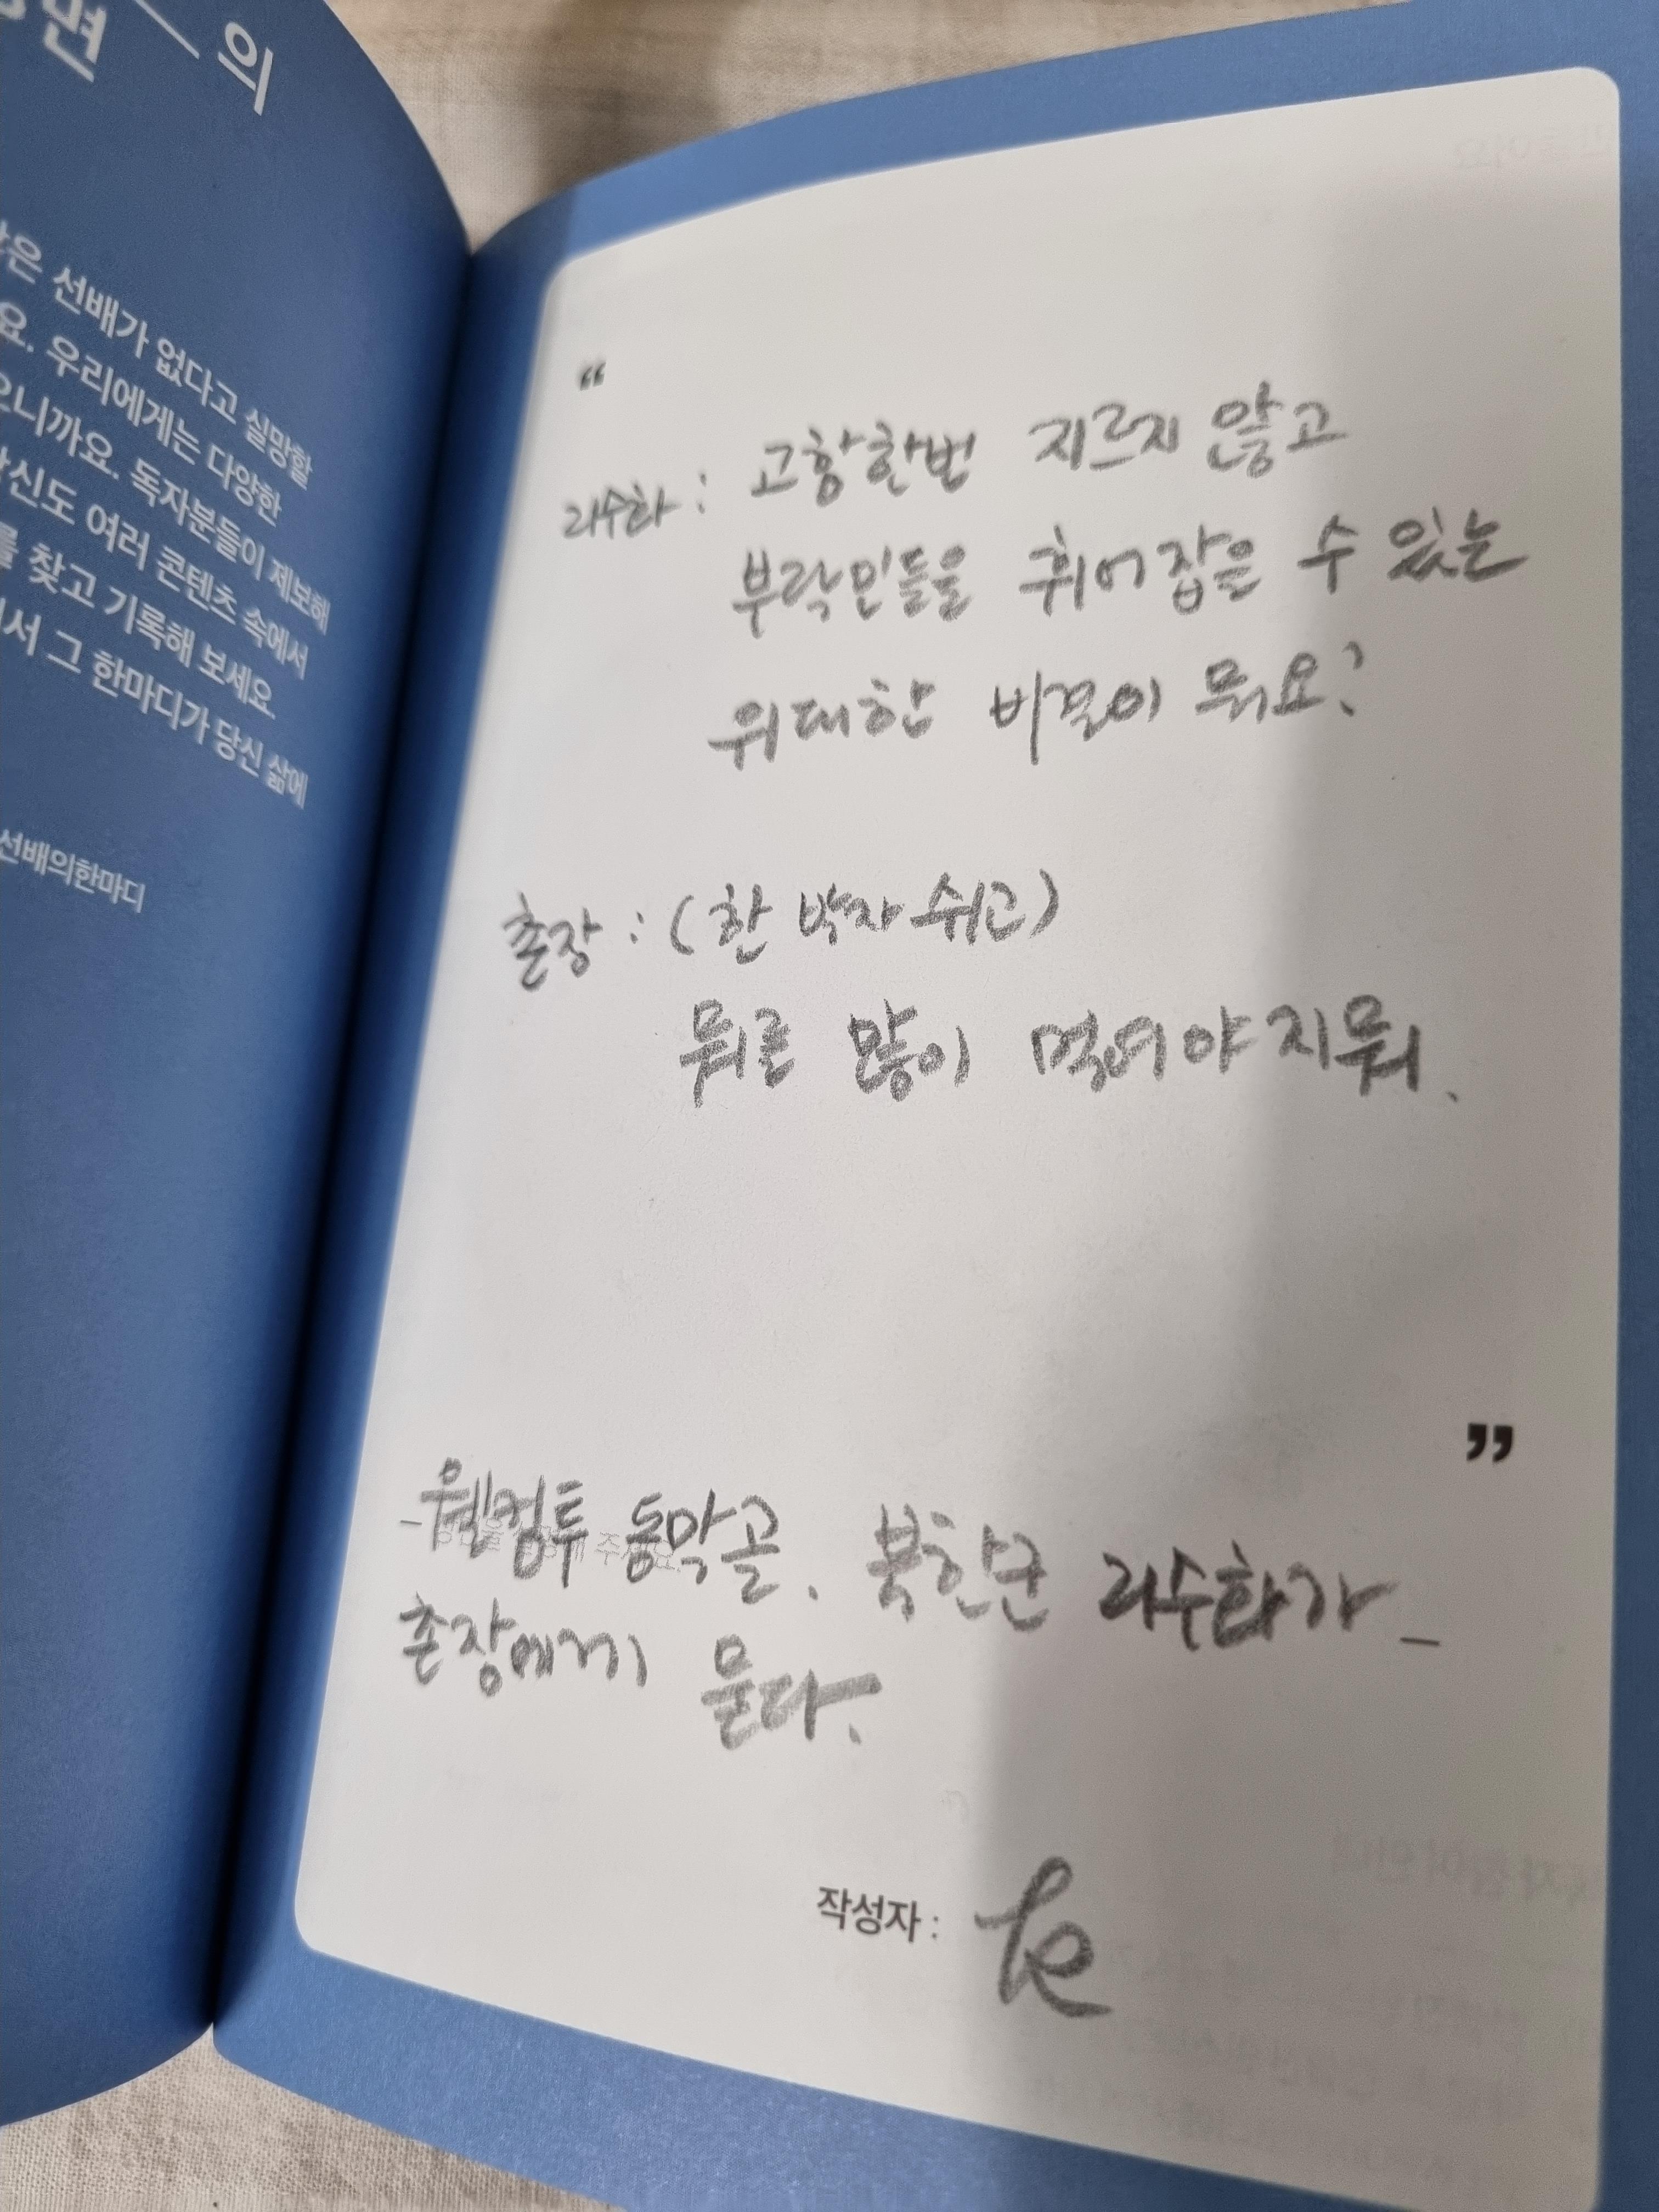 의
은 선배가 없다고 실망할
요. 우리에게는 다양한
으니까요. 독자분들이 제보해
당신도 여러 콘텐츠 속에서
를 찾고 기록해 보세요.
서 그 한마디가 당신 삶에
선배의한마디
“
리수화 : 고함한번 지르지 않고
부락민들을 휘어잡을 수 있는
위대한 비결이 뭐요?
촌장 : (한 박자 쉬고)
뭐를 많이 멕여야지뭐.
”
- 웰컴투 동막골. 북한군 리수화가 -
촌장에게 묻다.
작성자 :